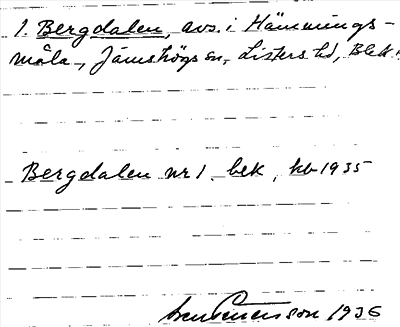 1. Bergdalen, avs. i Hämnings-
måla, Jämshögs sn, Listers hd, Blek.
Bergdalen nr 1 bek, kb 1935
1936